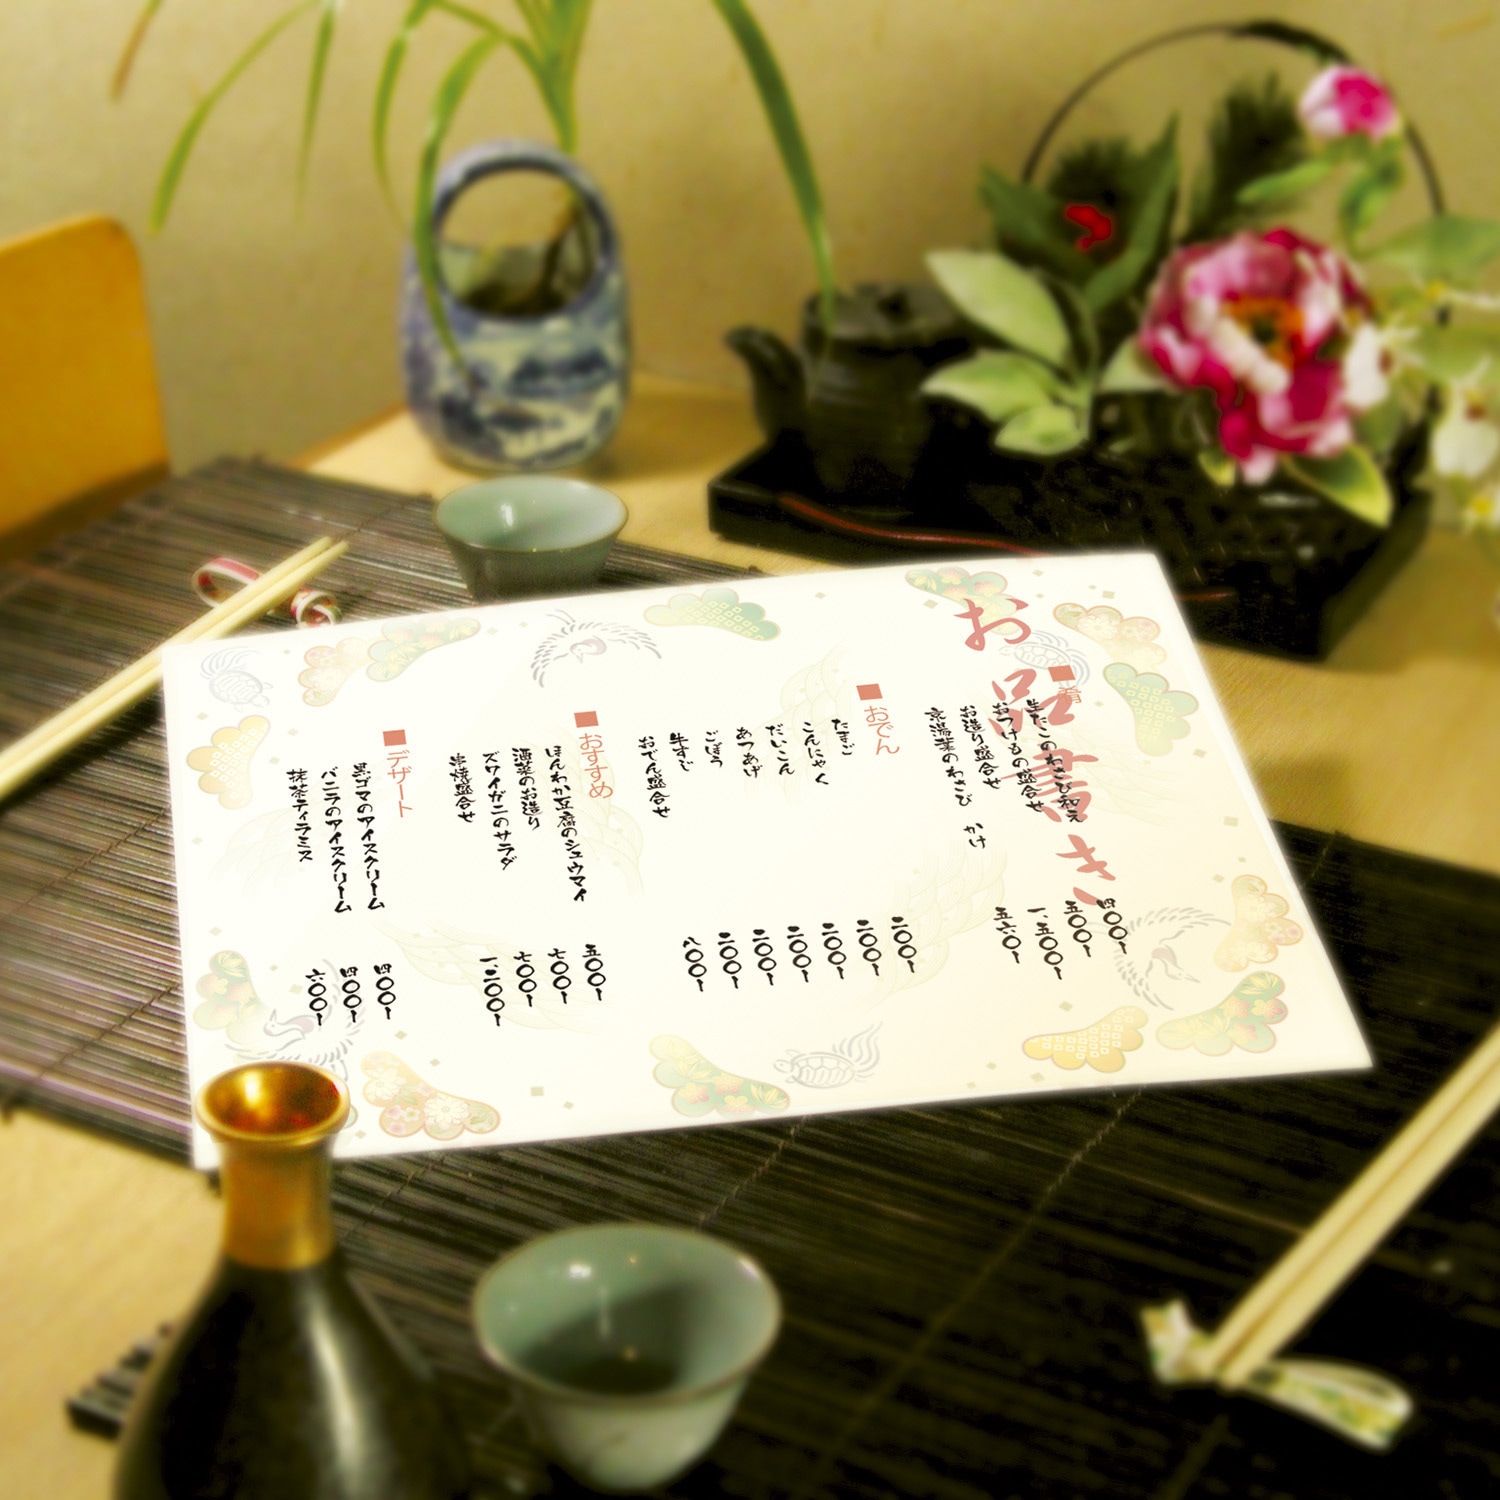 お品書き
■肴
生たこのわさび和え 四〇〇~
おつけもの盛合せ 五〇〇~
お造り盛合せ 一、五〇〇~
京湯葉のわさび かけ 五六〇~
■おでん
たまご 二〇〇~
こんにゃく 二〇〇~
だいこん 二〇〇~
あつあげ 二〇〇~
ごぼう 二〇〇~
牛すじ 二〇〇~
おでん盛合せ 八〇〇~
■おすすめ
ほんわか豆腐のシュウマイ 五〇〇~
湯葉のお造り 七〇〇~
ズワイガニのサラダ 七〇〇~
串焼盛合せ 一、二〇〇~
■デザート
黒ゴマのアイスクリーム 四〇〇~
バニラのアイスクリーム 四〇〇~
抹茶ティラミス 六〇〇~